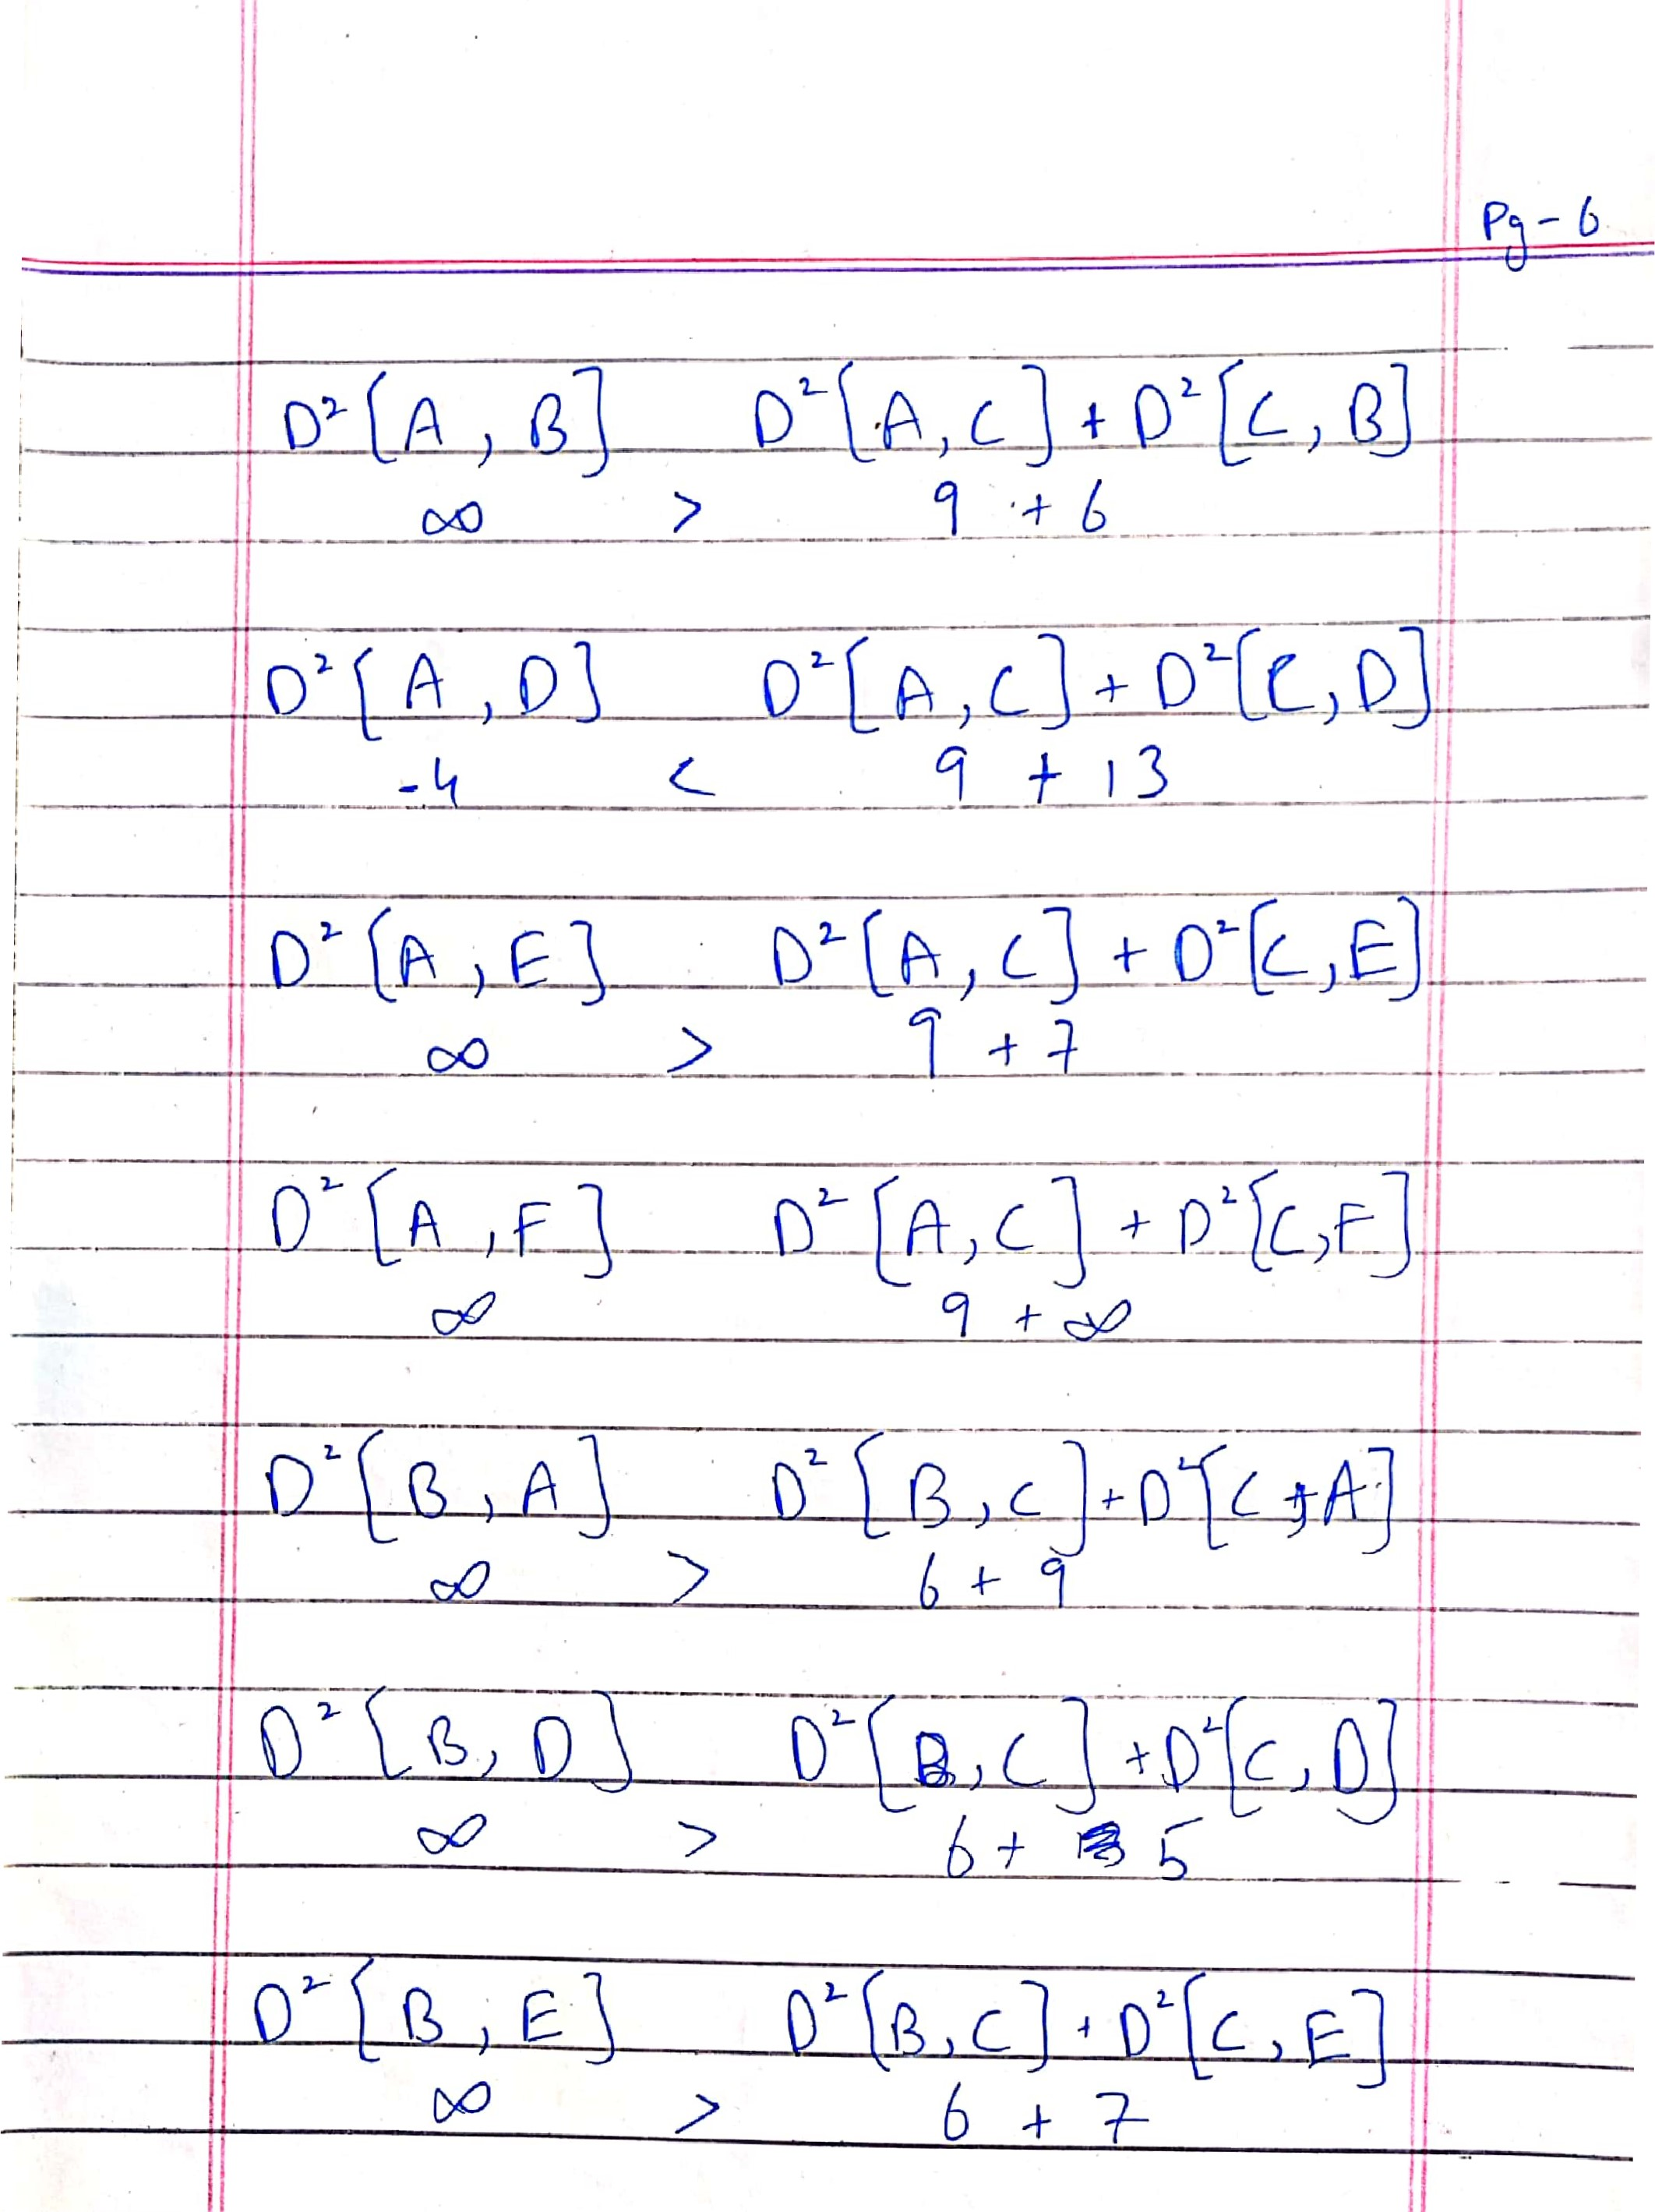 Pg - 6
D² [A, B] D² [A, C] + D² [C, B]
∞ > 9 + 6
D² [A, D] D² [A, C] + D² [C, D]
-4 < 9 + 13
D² [A, E] D² [A, C] + D² [C, E]
∞ > 9 + 7
D² [A, F] D² [A, C] + D² [C, F]
∞ 9 + ∞
D² [B, A] D² [B, C] + D² [C, A]
∞ > 6 + 9
D² [B, D] D² [B, C] + D² [C, D]
∞ > 6 + 5
D² [B, E] D² [B, C] + D² [C, E]
∞ > 6 + 7